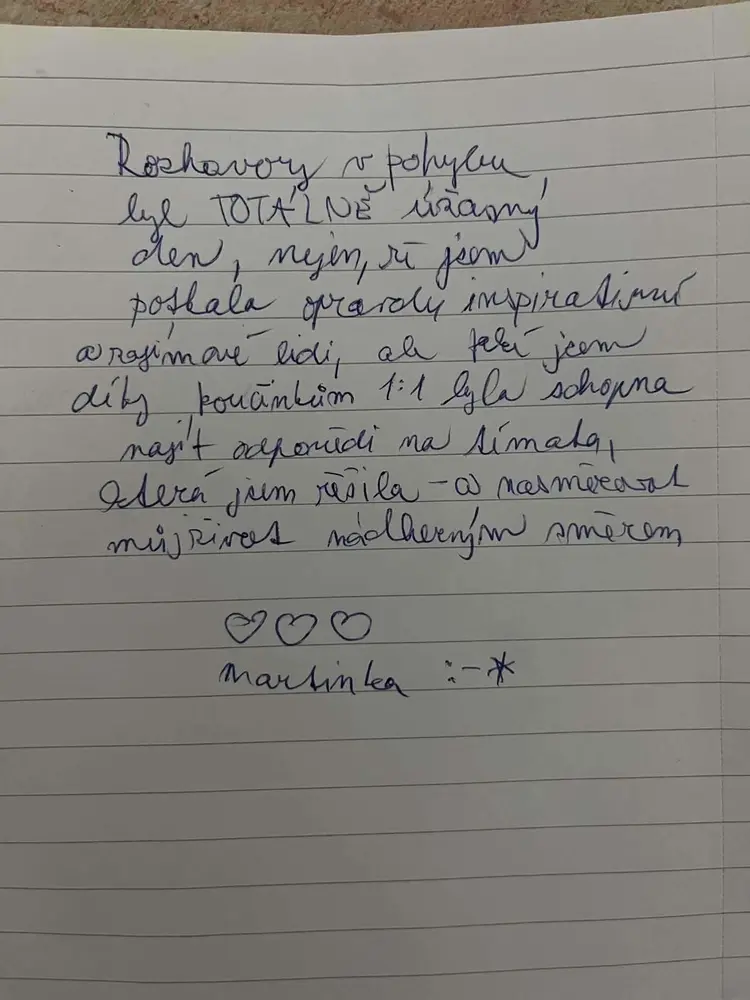 Rozhovory v pohybu
byl TOTÁLNĚ úžasný
den, nejen, že jsem
potkala opravdu inspirativní
a zajímavé lidi, ale také jsem
díky koučinkům 1:1 byla schopna
najít odpovědi na témata,
která jsem řešila – a nasměrovat
můj život nádherným směrem
♡♡♡
Martinka :-*